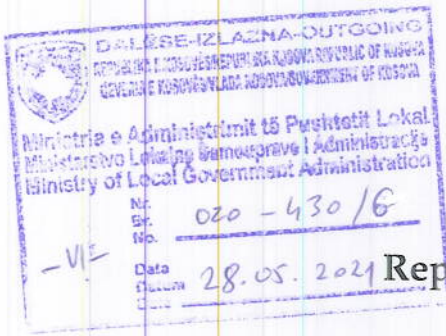 DALËSE-IZLAZNA-OUTGOING
REPUBLIKA E KOSOVËS/REPUBLIKA KOSOVA/REPUBLIC OF KOSOVA
QEVERIA E KOSOVËS/VLADA KOSOVA/GOVERNMENT OF KOSOVA
Ministria e Administrimit të Pushtetit Lokal
Ministarstvo Lokalne Samouprave i Administracije
Ministry of Local Government Administration
Nr.
Br. 020 - 430/6
No.
-VI-
Data
Datum 28.05.2021
Date
Rep